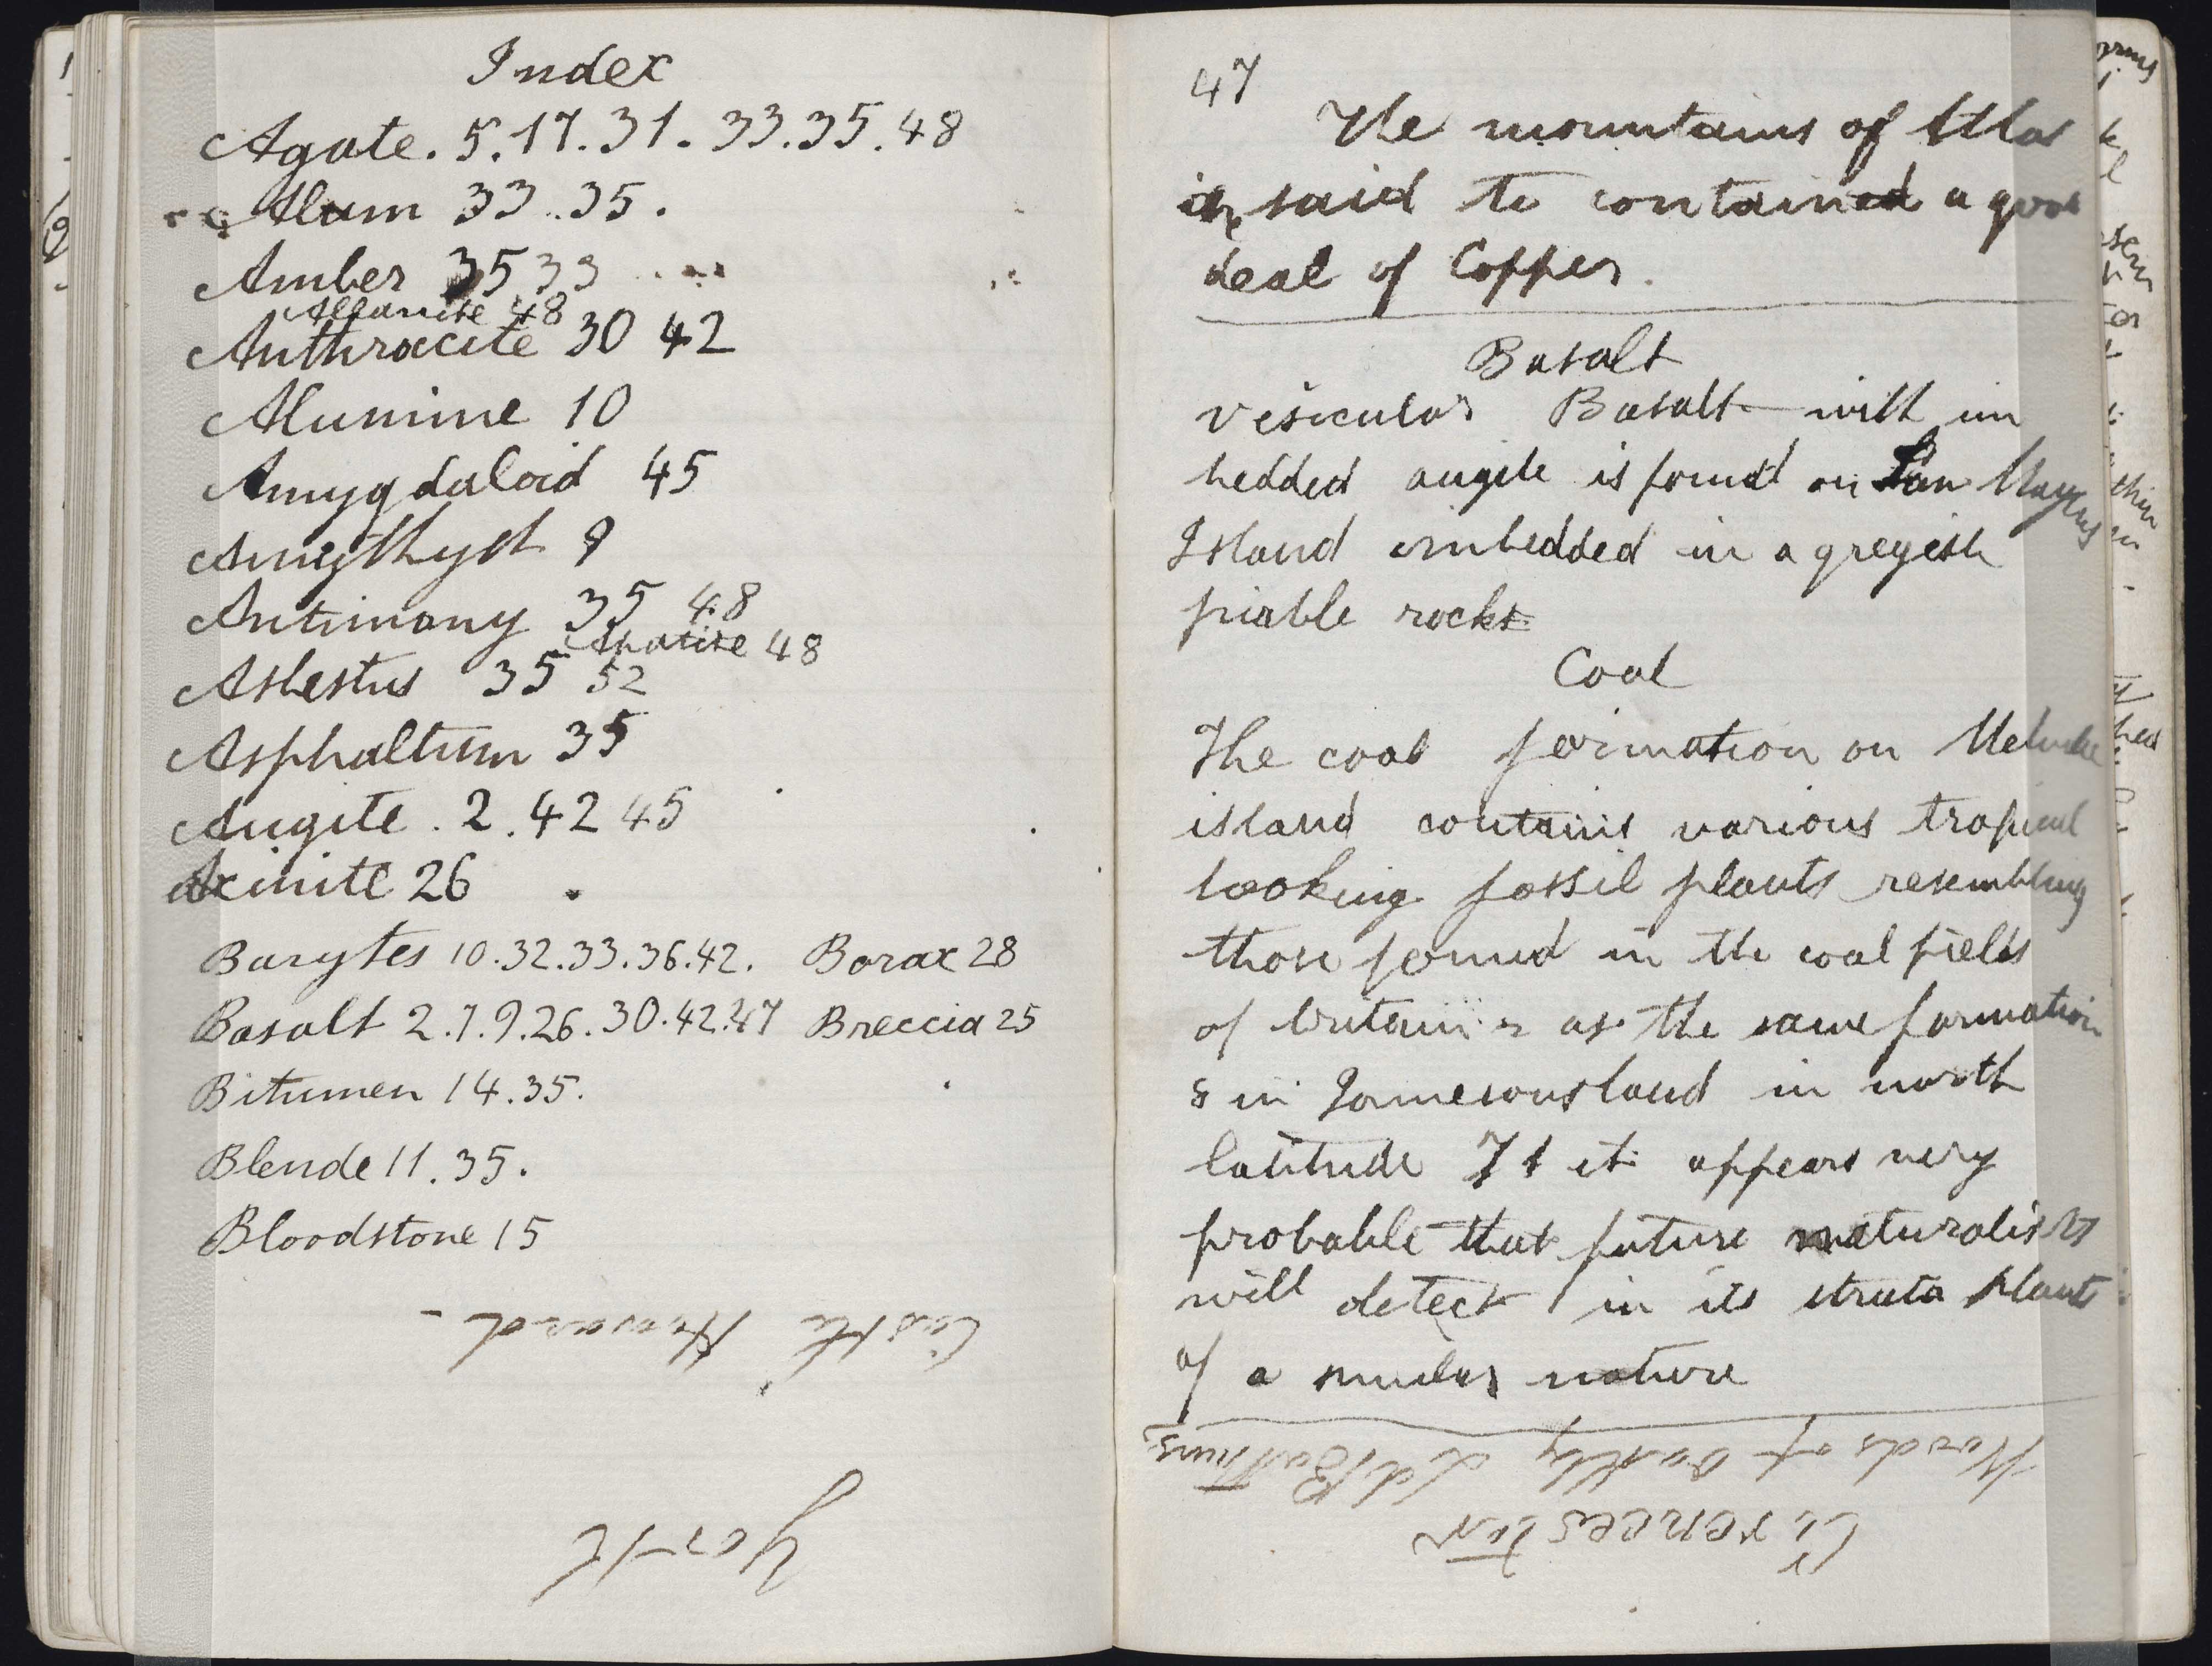 Index
Agate. 5.17.31.33.35.48
Alum 33..35.
Amber 35 33
Allanite 48
Anthracite 30 42
Alumine 10
Amygdaloid 45
Amythyst 9
Antimony 35 48
Apatite 48
Asbestus 35 52
Asphaltum 35
Augite. 2.42 45
Axinite 26
Barytes 10.32.33.36.42. Borax 28
Basalt 2.7.9.26.30.42.47 Breccia 25
Bitumen 14.35.
Blende 11.35.
Bloodstone 15
Castle Howard -
York
47
The mountains of
said to contained a good
deal of Copper.
Basalt
vesicular Basalt with im
bedded augite is found on Jan Mayens
Island imbedded in a greyish
friable rocks
Coal
The coal formation on Melville
island contains various tropical
looking fossil plants resembling
those found in the coal fields
of britain & as the same formation
s in Jamesonsland in north
latitude 71 it appears very
probable that future naturalists
will detect in its strata plants
of a similar nature
Words of Ld Bathurst
Cirencester